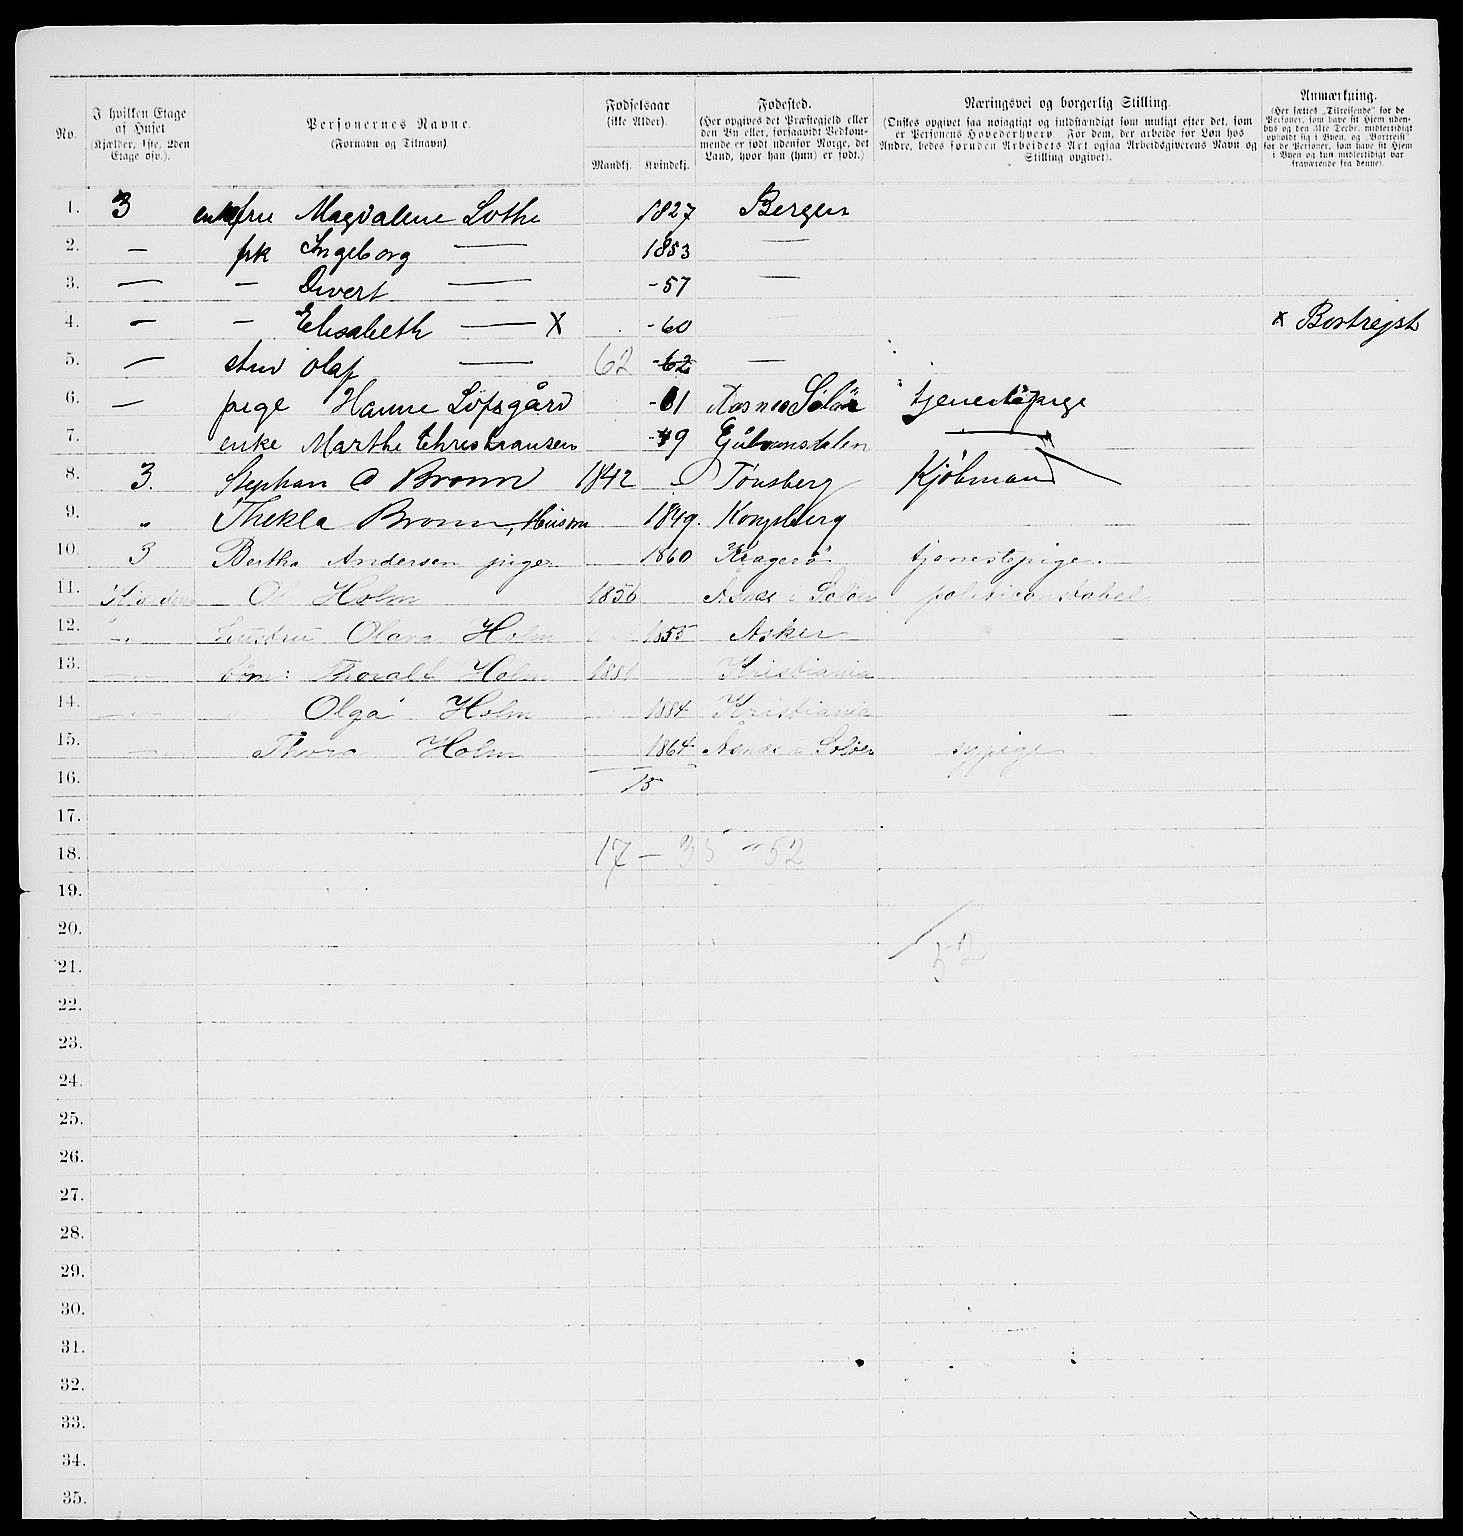 No.
I hvilken Etage af Huset (Kjælder, 1ste, 2den Etage osv.).
Personernes Navne. (Fornavn og Tilnavn).
Fødselsaar (ikke Alder). Mandkj. Kvindekj.
Fødested. (Her opgives det Præstegjeld eller den By eller, forsaavidt Vedkommende er født udenfor Norge, det Land, hvor han (hun) er født.)
Næringsvei og borgerlig Stilling. (Ønskes opgivet saa nøiagtigt og fuldstændigt som muligt efter det, som er Personens Hovederhverv. For dem, der arbeide for Løn hos Andre, bedes foruden Arbeidets Art ogsaa Arbeidsgiverens Navn og Stilling opgivet).
Anmærkning. (Her sættes „Tilreisende“ for de Personer, som have sit Hjem udenbys og den 31te Decbr. midlertidigt opholdt sig i Byen, og „Bortreist“ for de Personer, som have sit Hjem i Byen og kun midlertidigt var fraværende fra denne).
1. 3 enkefru Magdalene Lothe 1827 Bergen
2. — frk Ingeborg — 1853 —
3. — — — -57 —
4. — — Elisabeth — X -60 — x Bortrejst
5. — stud Olaf — 62 -62 —
6. — pige Hanne Löfsgård -61 Aasnes Solør tjenestepige
7. enke Marthe Christiansen -49 —"—
8. 3. Stephan Bronn 1842 Tønsberg Kjøbmand
9. " Thekla Bronn, Hustru 1849. Kongsberg
10. 3 Bertha Andersen pige 1860 Kragerö tjenestepige.
11. Holm 1856 Åsnes i Soløer politikonstabel
12. —"— hustru Olava Holm 1855 Asker
13. —"— børn: Thorald Holm 1881 Kristiania
14. —"— Olga Holm 1884 Kristiania —
15. —"— Thora Holm 1864 Åsnes i Soløer sypige
16. 15
17.
18. 17 — 35 " 52
19.
20.
21. 52
22.
23.
24.
25.
26.
27.
28.
29.
30.
31.
32.
33.
34.
35.